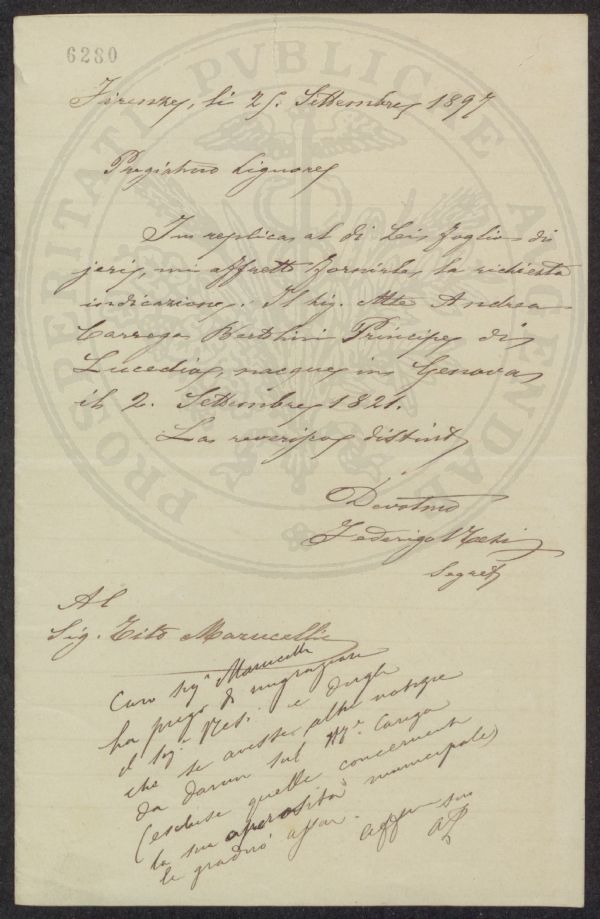 6280
Firenze, li 25. Settembre 1897
Pregiatmo Signore
In replica al di Lei foglio di
jeri, mi affretto fornirle la richiesta
indicazione. Il Sig. Mse Andrea
Carrega Bertolini Principe di
Lucedio, nacque in Genova
il 2. Settembre 1821.
La reverisco distint
Devotmo
Federigo
Segret
Al
Sig. Tito Marucelli
Caro Sigr Marucelli
La prego di ringraziare
il Sigr e dirgli
che se avesse altre notizie
da darmi sul Mse Carega
(escluse quelle concernenti
la sua operosità municipale)
le gradirò assai.
Affmo suo
PROSPERITATI PVBLICAE AVGENDAE